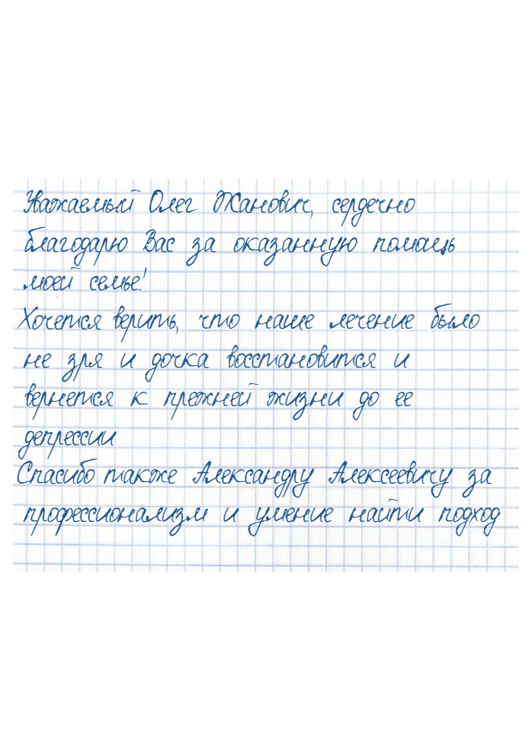 Уважаемый Олег Жанович, сердечно
благодарю Вас за оказанную помощь
моей семье!
Хочется верить, что наше лечение было
не зря и дочка восстановится и
вернется к прежней жизни до ее
депрессии
Спасибо также Александру Алексеевичу за
профессионализм и умение найти подход